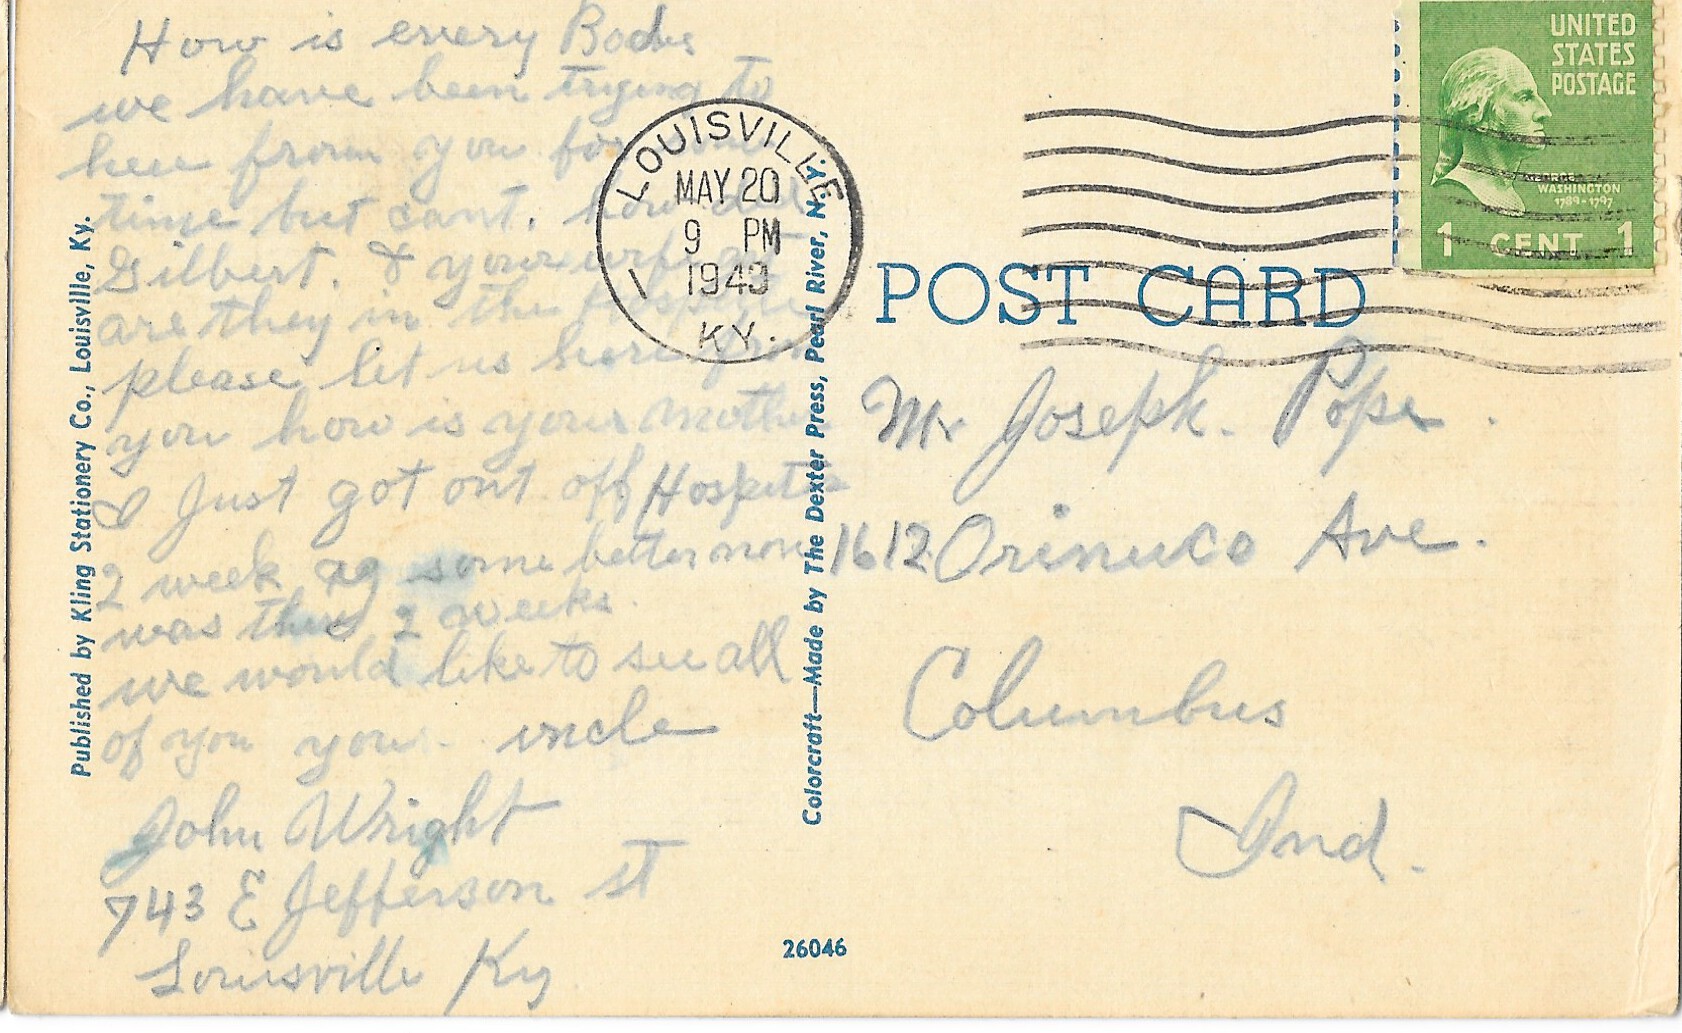 How is every Body
we have been trying to
here from you for
time but cant. how did
Gilbert. & your wife
are they in the Hospital
please let us here from
you how is your Mother
I Just got out off Hospital
2 week ag some better now
was there 2 weeks.
we would like to see all
of you your uncle
John Wright
743 E Jefferson st
Louisville Ky
Published by Kling Stationery Co., Louisville, Ky.
LOUISVILLE
MAY 20
9 PM
1949
1
KY.
Colorcraft—Made by The Dexter Press, Pearl River, N.Y.
26046
UNITED
STATES
POSTAGE
GEORGE
WASHINGTON
1789-1797
1 CENT 1
POST CARD
Mr Joseph. Pope.
1612 Orinuco Ave.
Columbus
Ind.